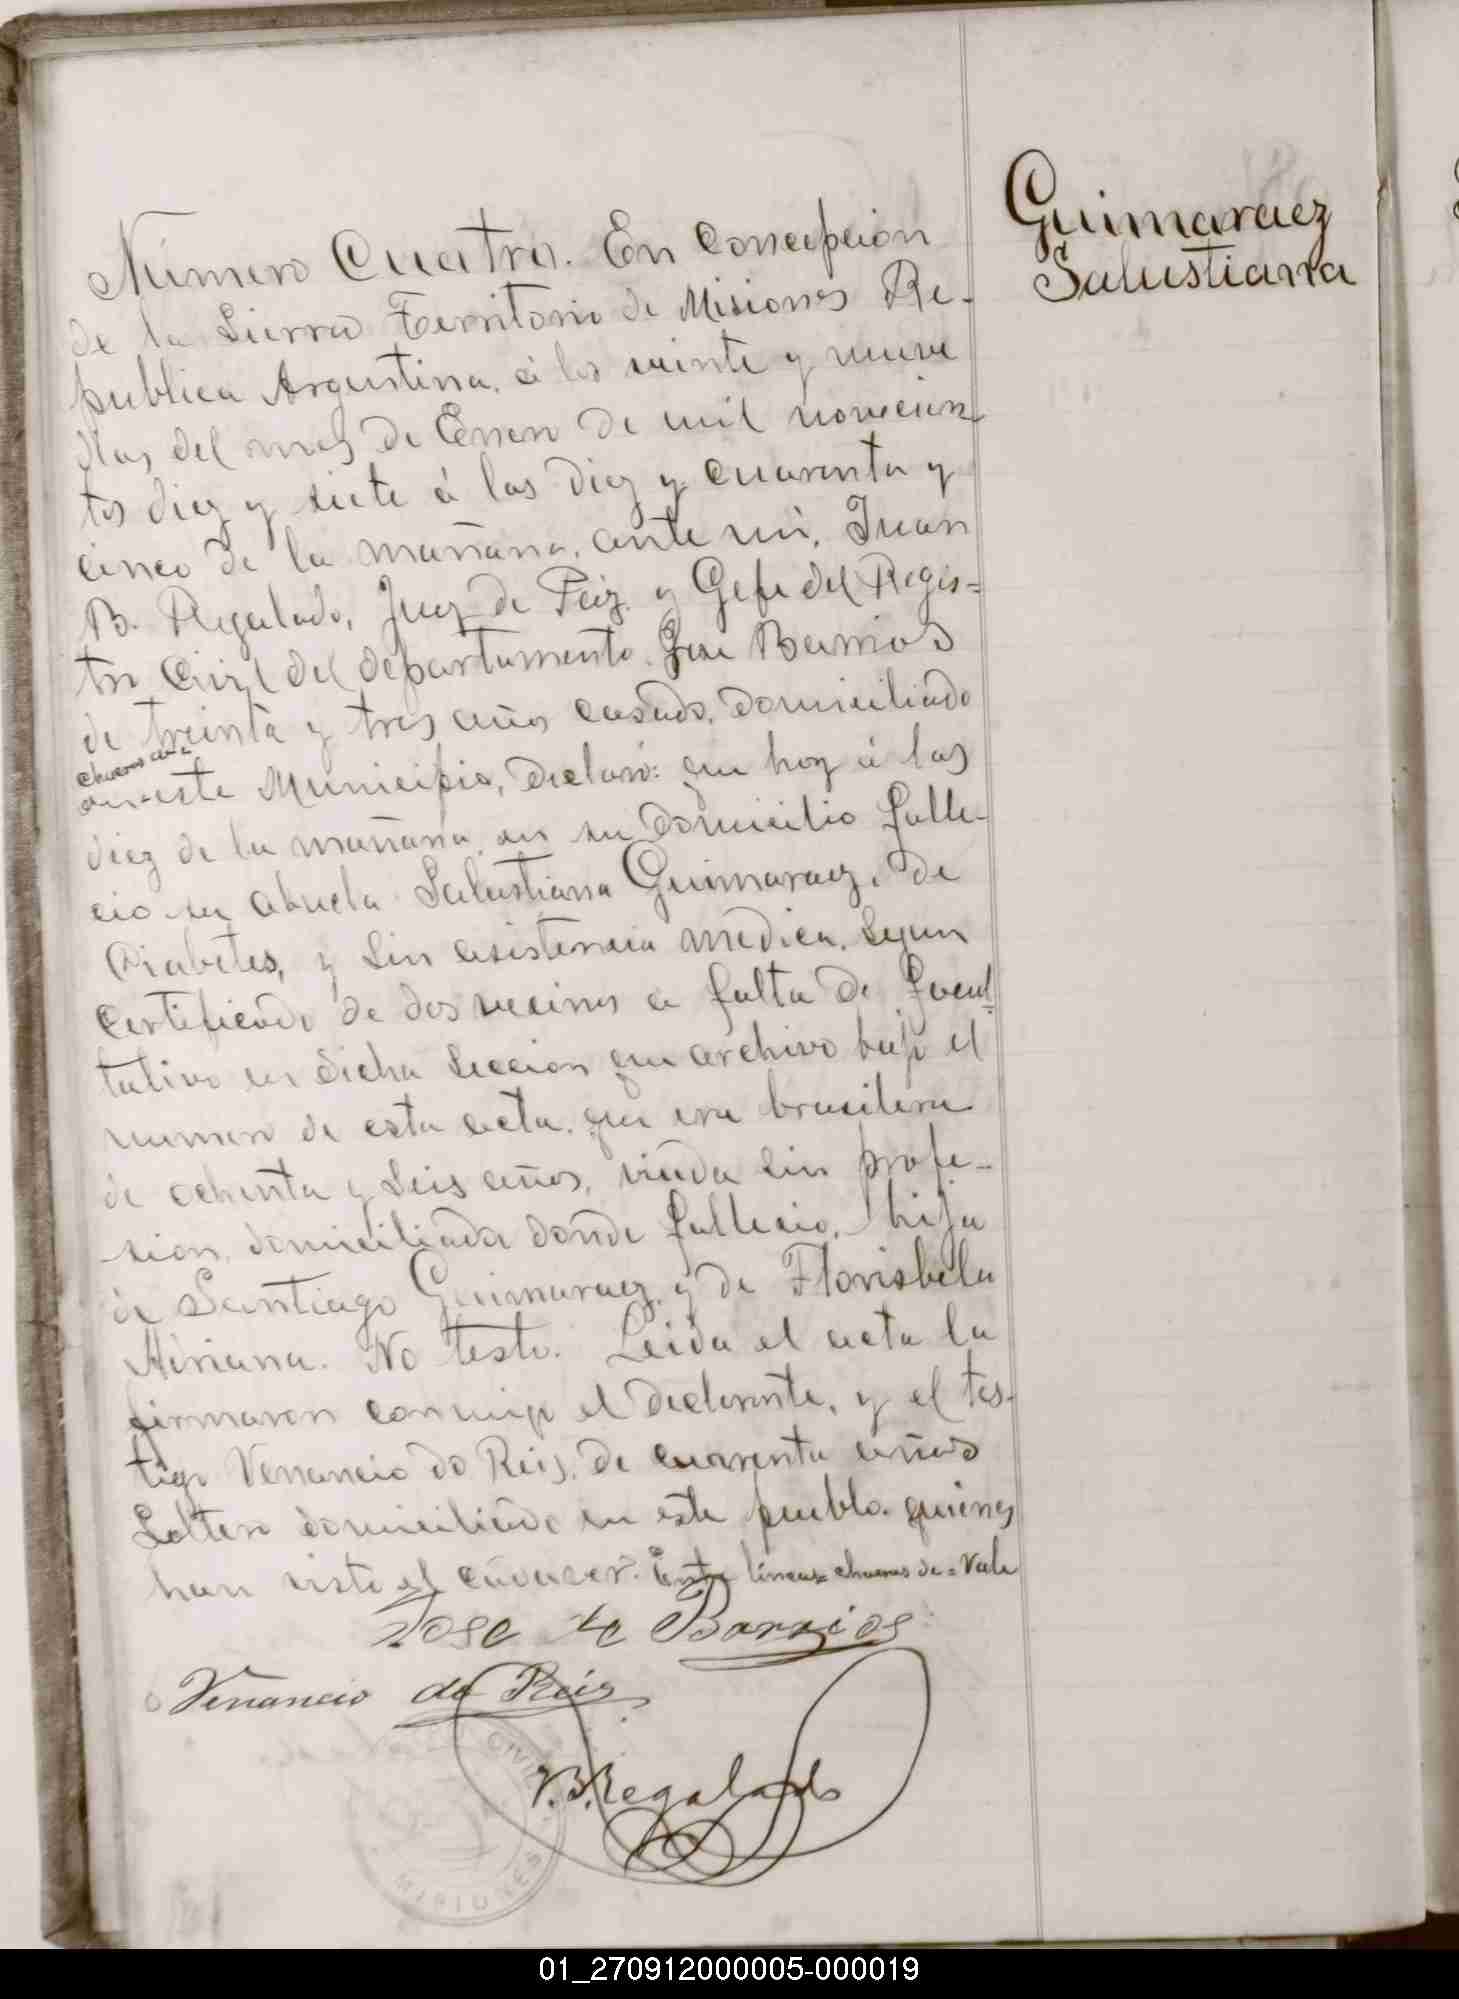 Guimaraez
Salustiana
Número Cuatro. En Concepcion
de la Sierra Territorio de Misiones Re-
publica Argentina, á los veinte y nueve
dias del mes de Enero de mil novecien-
tos diez y siete á las diez y cuarenta y
cinco de la mañana, ante mi, Juan
B. Regalado, Juez de Paz y Gefe del Regis=
tro Civil del departamento José Barrios
de treinta y tres años casado, domiciliado
este Municipio, declaró: que hoy á las
diez de la mañana, en su domicilio falle-
cio su abuela Salustiana Guimaraez, de
Diabetes, y sin asistencia medica, segun
certificado de dos vecinos a falta de facul-
tativo en dicha Seccion que archivo bajo el
numero de esta acta, que era brasilera
de ochenta y seis años, viuda sin profe-
sion, domiciliada donde fallecio, hija
de Santiago Guimaraez y de Florisbela
No testo. Leida el acta la
firmaron conmigo el declarante, y el tes-
tigo Venancio do Reis, de cuarenta años
Soltero domiciliado en este pueblo. quienes
han visto el cadaver. Entre lineas= chacras de = Vale
Jose de Barrios
Venancio do Reis
J.B. Regalado
CIVIL
MISIONES
01_270912000005-000019